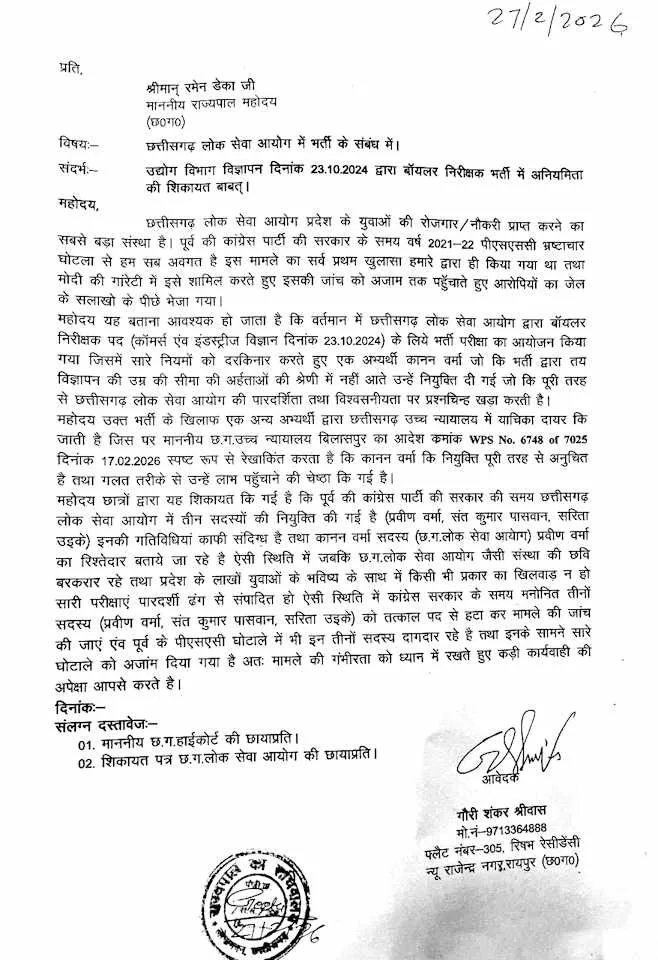 27/2/2026
प्रति,
श्रीमान् रमेन डेका जी
माननीय राज्यपाल महोदय
(छ0ग0)
विषयः– छत्तीसगढ़ लोक सेवा आयोग में भर्ती के संबंध में।
संदर्भः– उद्योग विभाग विज्ञापन दिनांक 23.10.2024 द्वारा बॉयलर निरीक्षक भर्ती में अनियमिता
की शिकायत बाबत्।
महोदय,
छत्तीसगढ़ लोक सेवा आयोग प्रदेश के युवाओं की रोजगार/नौकरी प्राप्त करने का
सबसे बड़ा संस्था है। पूर्व की कांग्रेस पार्टी की सरकार के समय वर्ष 2021–22 पीएसएससी भ्रष्टाचार
घोटला से हम सब अवगत है इस मामले का सर्व प्रथम खुलासा हमारे द्वारा ही किया गया था तथा
मोदी की गांरेटी में इसे शामिल करते हुए इसकी जांच को अजाम तक पहुँचाते हुए आरोपियों का जेल
के सलाखो के पीछे भेजा गया।
महोदय यह बताना आवश्यक हो जाता है कि वर्तमान में छत्तीसगढ़ लोक सेवा आयोग द्वारा बॉयलर
निरीक्षक पद (कॉमर्स एंव इंडस्ट्रीज विज्ञान दिनांक 23.10.2024) के लिये भर्ती परीक्षा का आयोजन किया
गया जिसमें सारे नियमों को दरकिनार करते हुए एक अभ्यर्थी कानन वर्मा जो कि भर्ती द्वारा तय
विज्ञापन की उम्र की सीमा की अर्हताओं की श्रेणी में नहीं आते उन्हें नियुक्ति दी गई जो कि पूरी तरह
से छत्तीसगढ़ लोक सेवा आयोग की पारदर्शिता तथा विश्वसनीयता पर प्रश्नचिन्ह खड़ा करती है।
महोदय उक्त भर्ती के खिलाफ एक अन्य अभ्यर्थी द्वारा छत्तीसगढ़ उच्च न्यायालय में याचिका दायर कि
जाती है जिस पर माननीय छ.ग.उच्च न्यायालय बिलासपुर का आदेश क्रमांक WPS No. 6748 of 7025
दिनांक 17.02.2026 स्पष्ट रूप से रेखाकिंत करता है कि कानन वर्मा कि नियुक्ति पूरी तरह से अनुचित
है तथा गलत तरीके से उन्हें लाभ पहुँचाने की चेष्ठा कि गई है।
महोदय छात्रों द्वारा यह शिकायत कि गई है कि पूर्व की कांग्रेस पार्टी की सरकार की समय छत्तीसगढ़
लोक सेवा आयोग में तीन सदस्यों की नियुक्ति की गई है (प्रवीण वर्मा, संत कुमार पासवान, सरिता
उइके) इनकी गतिविधियां काफी संदिग्ध है तथा कानन वर्मा सदस्य (छ.ग.लोक सेवा आयेाग) प्रवीण वर्मा
का रिश्तेदार बताये जा रहे है ऐसी स्थिति में जबकि छ.ग.लोक सेवा आयोग जैसी संस्था की छवि
बरकरार रहे तथा प्रदेश के लाखों युवाओं के भविष्य के साथ में किसी भी प्रकार का खिलवाड़ न हो
सारी परीक्षाएं पारदर्शी ढंग से संपादित हो ऐसी स्थिति में कांग्रेस सरकार के समय मनोनित तीनों
सदस्य (प्रवीण वर्मा, संत कुमार पासवान, सरिता उइके) को तत्काल पद से हटा कर मामले की जांच
की जाएं एंव पूर्व के पीएससी घोटाले में भी इन तीनों सदस्य दागदार रहे है तथा इनके सामने सारे
घोटाले को अजांम दिया गया है अतः मामले की गंभीरता को ध्यान में रखते हुए कड़ी कार्यवाही की
अपेक्षा आपसे करते है।
दिनांकः–
संलग्न दस्तावेजः–
01. माननीय छ.ग.हाईकोर्ट की छायाप्रति।
02. शिकायत पत्र छ.ग.लोक सेवा आयोग की छायाप्रति।
आवेदक
गौरी शंकर श्रीवास
मो.नं–9713364888
फ्लैट नंबर–305, रिषभ रेसीडेंसी
न्यू राजेन्द्र नगर,रायपुर (छ0ग0)
राज्यपाल का सचिवालय